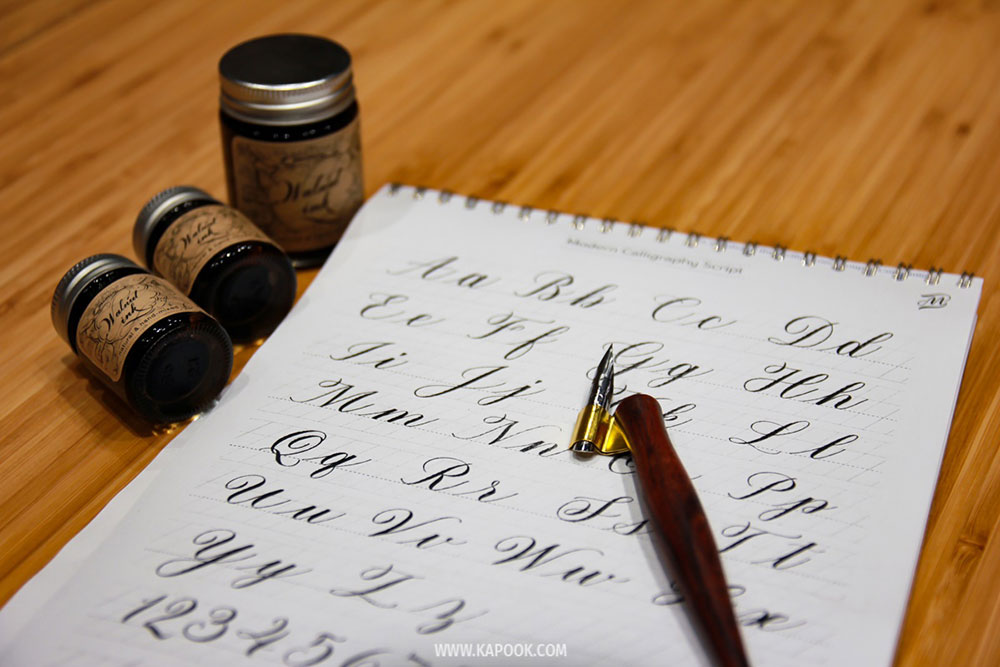 Walnut
ink
Walnut
ink
Walnut
ink
Modern Calligraphy Script
Aa Bb Cc Dd
Ee Ff Gg Hh
Ii Jj Ll
Mm Nn Pp
Qq Rr Ss Tt
Uu Vv Ww x
Yy Zz
123456
WWW.KAPOOK.COM